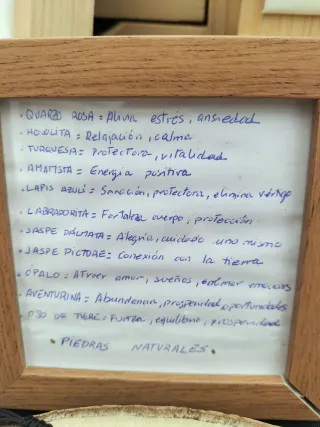 • QUARZO ROSA = Alivia estrés, ansiedad
• HOWLITA = Relajación, calma
• TURQUESA = Protectora, vitalidad
• AMATISTA = Energía positiva
• LAPIS AZULI = Sanación, protectora, elimina vértigo
• LABRADORITA = Fortaleza cuerpo, protección
• JASPE DALMATA = Alegría, cuidado uno mismo
• JASPE PICTURE = Conexión con la tierra
• ÓPALO = Atraer amor, sueños, calmar emociones
• AVENTURINA = Abundancia, prosperidad, oportunidades
• OJO DE TIGRE = Fuerza, equilibrio, prosperidad
• PIEDRAS NATURALES •